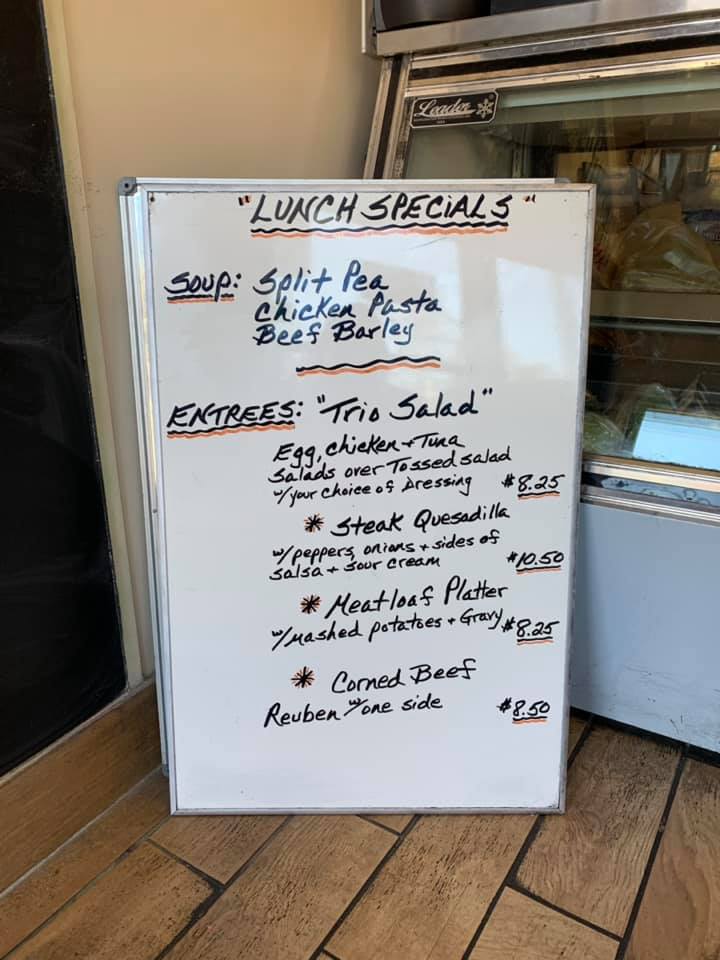 Leader
"LUNCH SPECIALS"
SOUP: Split Pea
Chicken Pasta
Beef Barley
ENTREES: "Trio Salad"
Egg, chicken + Tuna
Salads over Tossed salad
w/your choice of Dressing $8.25
* Steak Quesadilla
w/peppers, onions + sides of
salsa + sour cream $10.50
* Meatloaf Platter
w/mashed potatoes + Gravy $8.25
* Corned Beef
Reuben w/one side $8.50